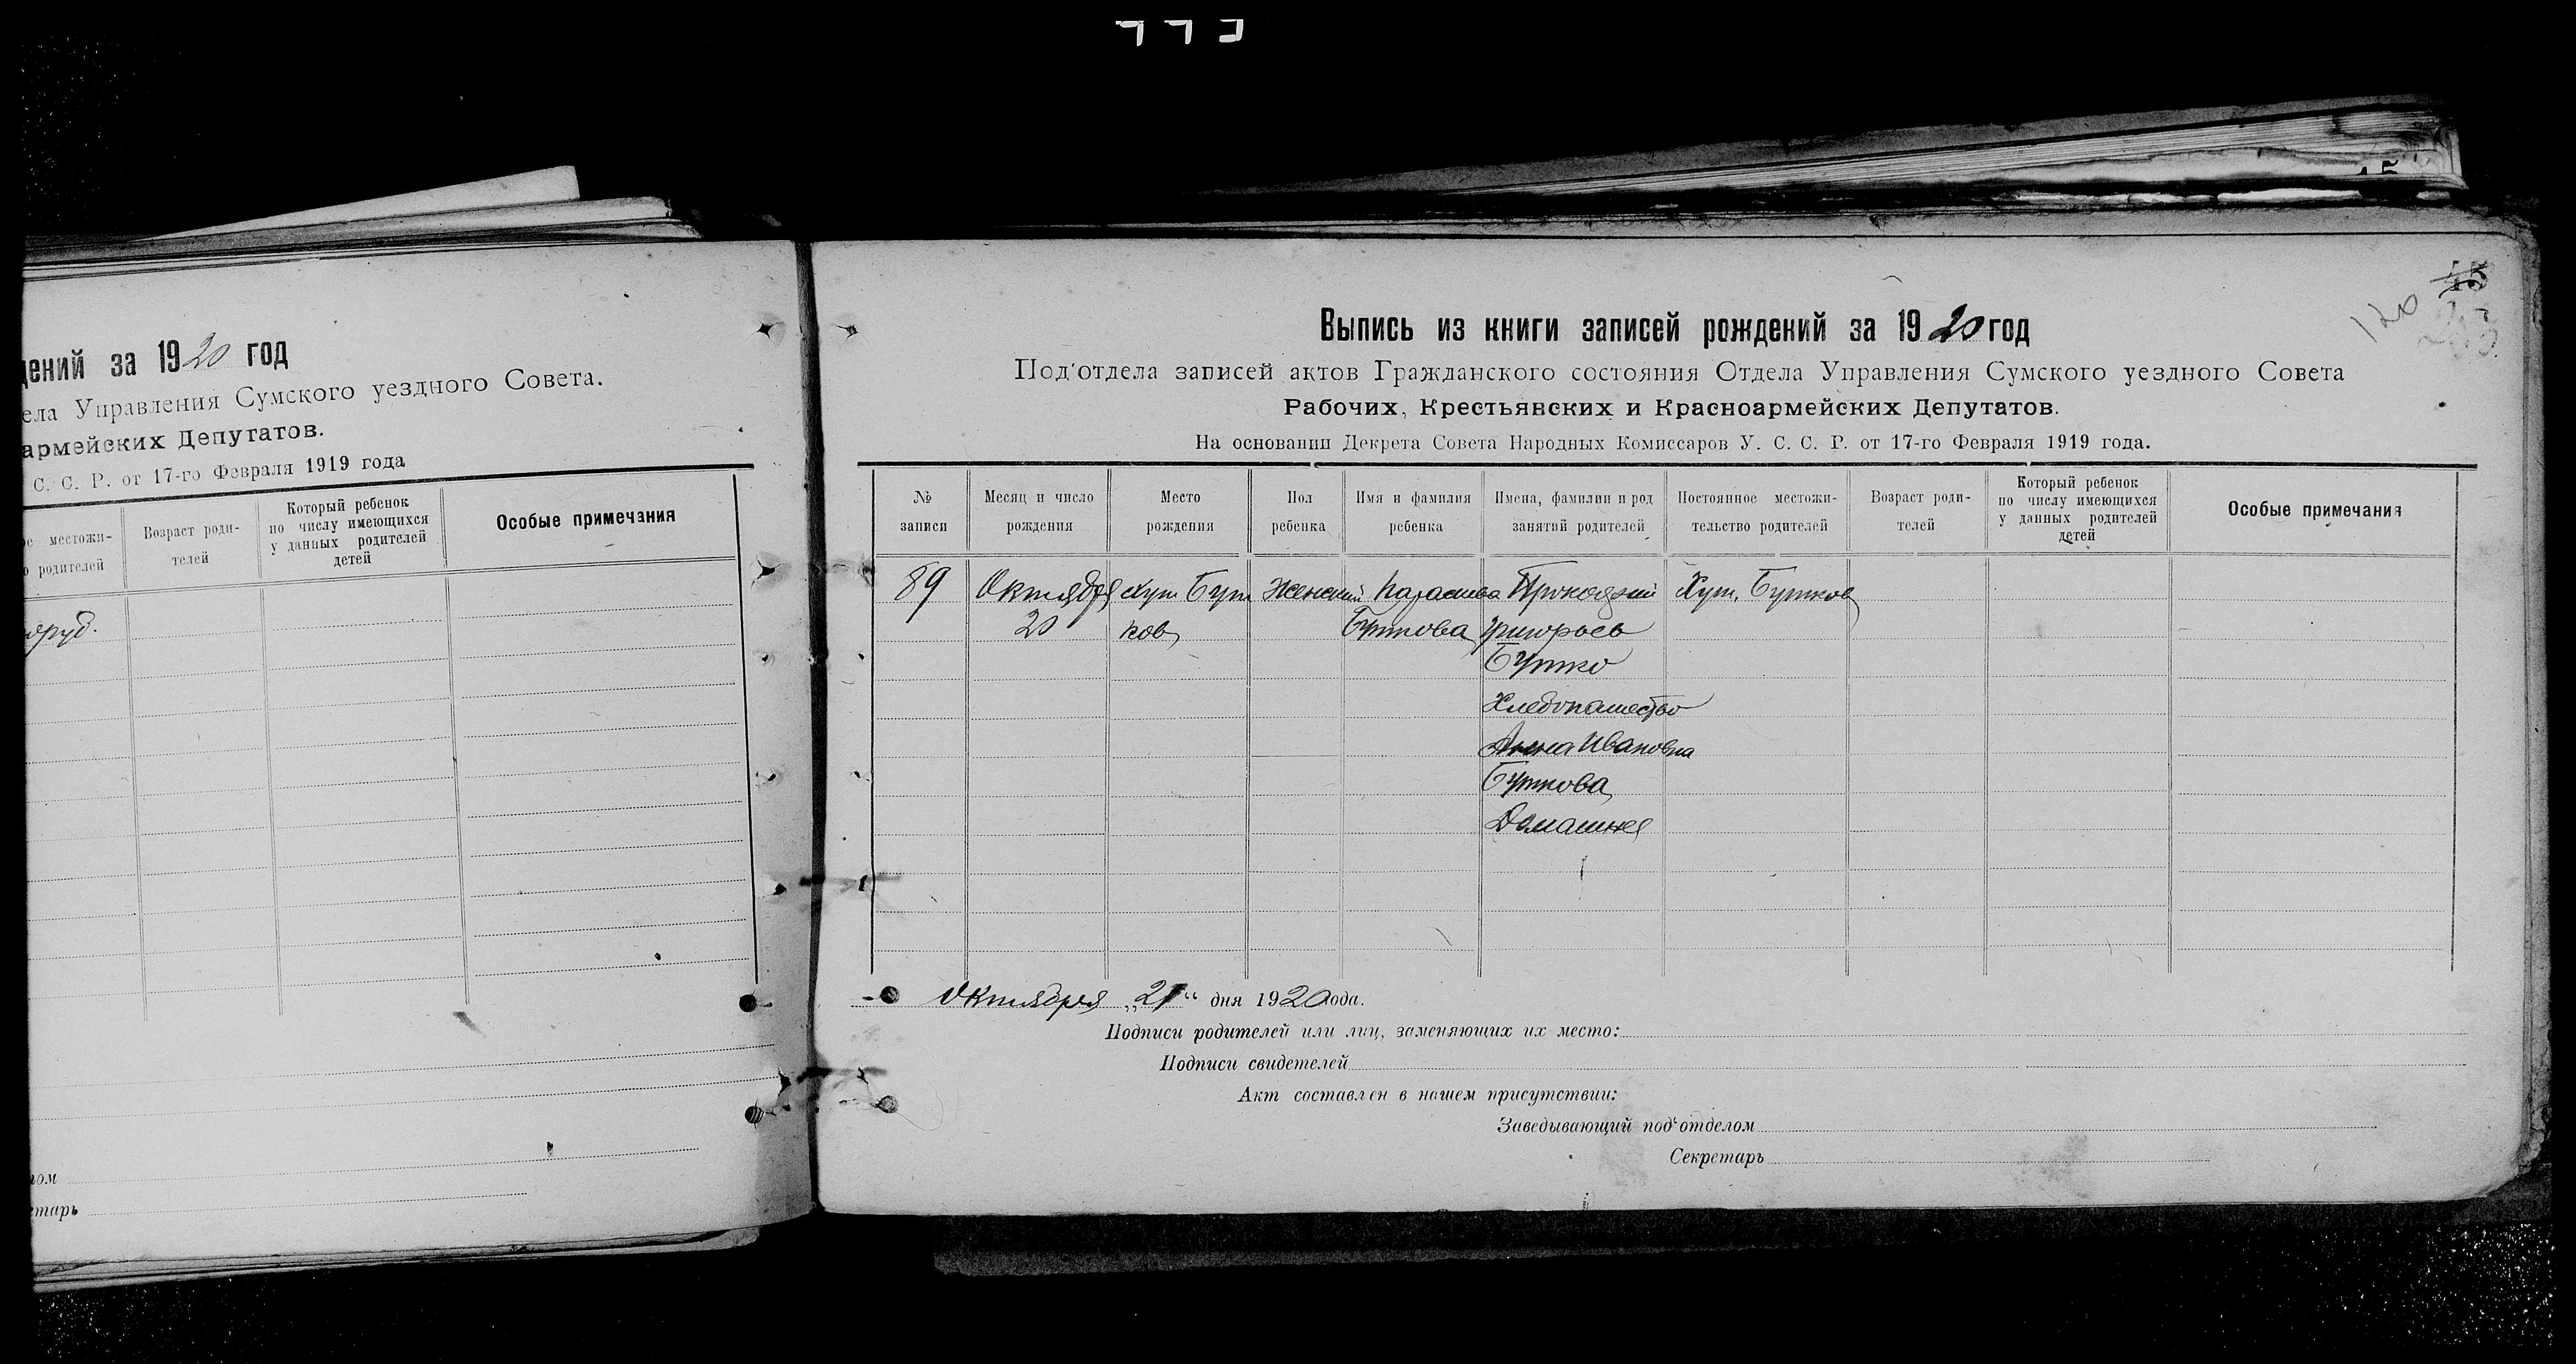 дений за 1920 год
ела Управления Сумского уездного Совета.
армейских Депутатов.
С. С. Р. от 17-го Февраля 1919 года
е местожи-
о родителей
Возраст роди-
телей
Который ребенок
по числу имеющихся
у данных родителей
детей
Особые примечания
тарь
120
Выпись из книги записей рождений за 1920 год
Под'отдела записей актов Гражданского состояния Отдела Управления Сумского уездного Совета
Рабочих, Крестьянских и Красноармейских Депутатов.
На основании Декрета Совета Народных Комиссаров У. С. С. Р. от 17-го Февраля 1919 года.
№
записи
Месяц и число
рождения
Место
рождения
Пол
ребенка
Имя и фамилия
ребенка
Имена, фамилии и род
занятий родителей
Постоянное местожи-
тельство родителей
Возраст роди-
телей
Который ребенок
по числу имеющихся
у данных родителей
детей
Особые примечания
89
Октября
20
хут Бут
ков
Женский
Параскева
Буткова
Григорьев
Бутко
Хлебопашество
Анна Ивановна
Буткова
Домашнея
Хут. Бутков
Октября „21“ дня 1920 года.
Подписи родителей или лиц, заменяющих их место:
Подписи свидетелей
Акт составлен в нашем присутствии:
Заведывающий под'отделом
Секретарь